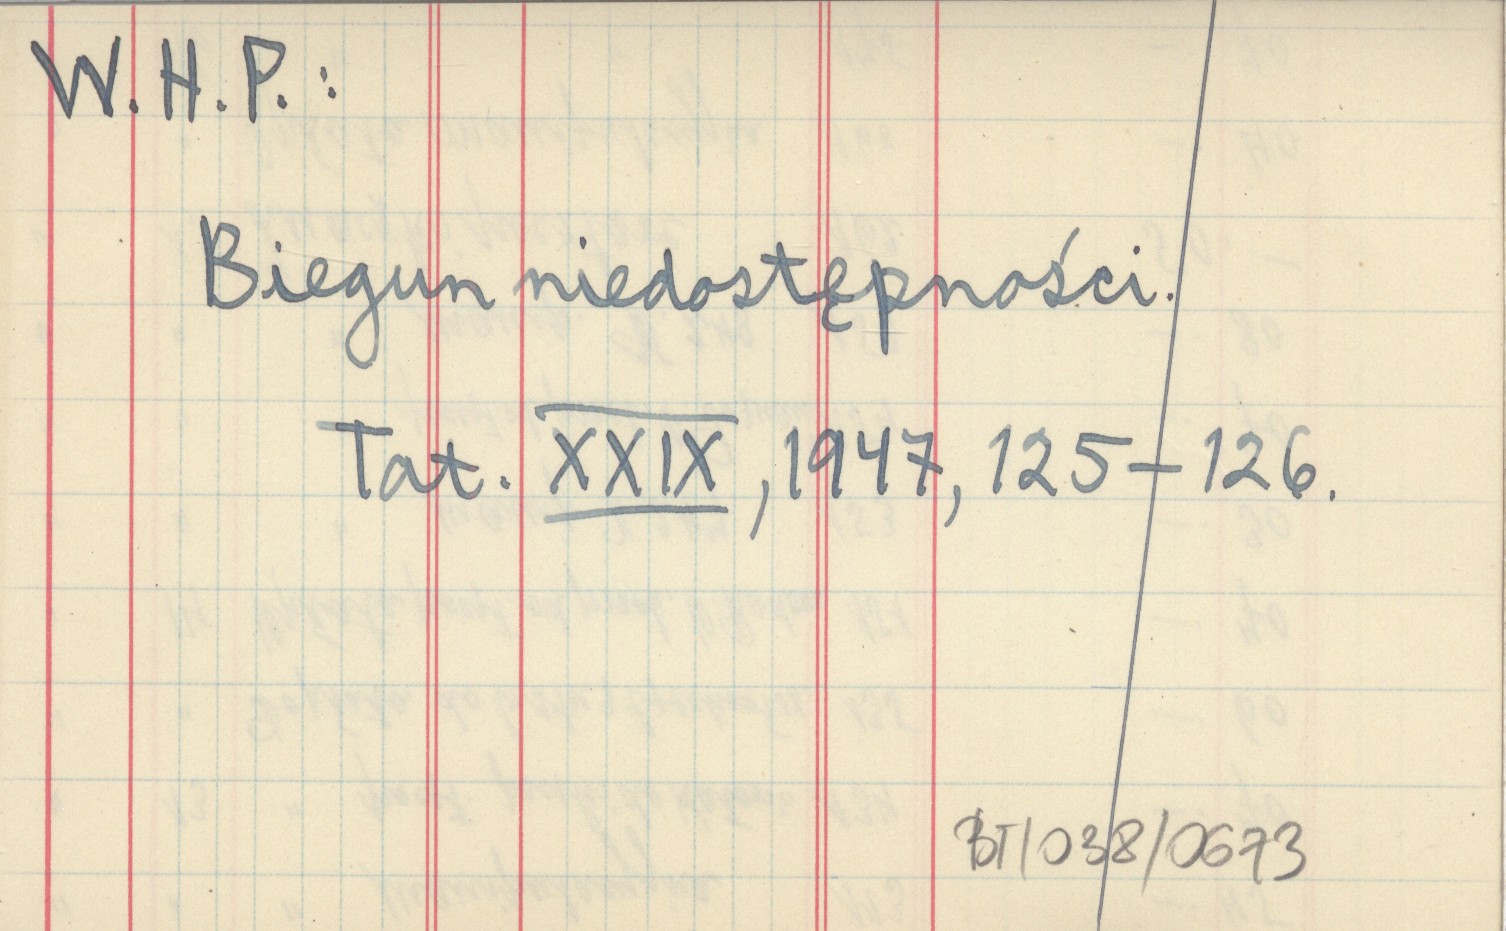 W.H.P.:
Biegun niedostępności.
Tat. XXIX, 1947, 125-126.
BT/038/0673